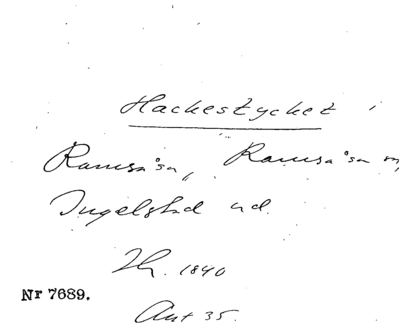 Hackestycket i
Ramsåsa, Ramsåsa sn,
Ingelstad hd.
1840
Nr 7689.
Ant 35.